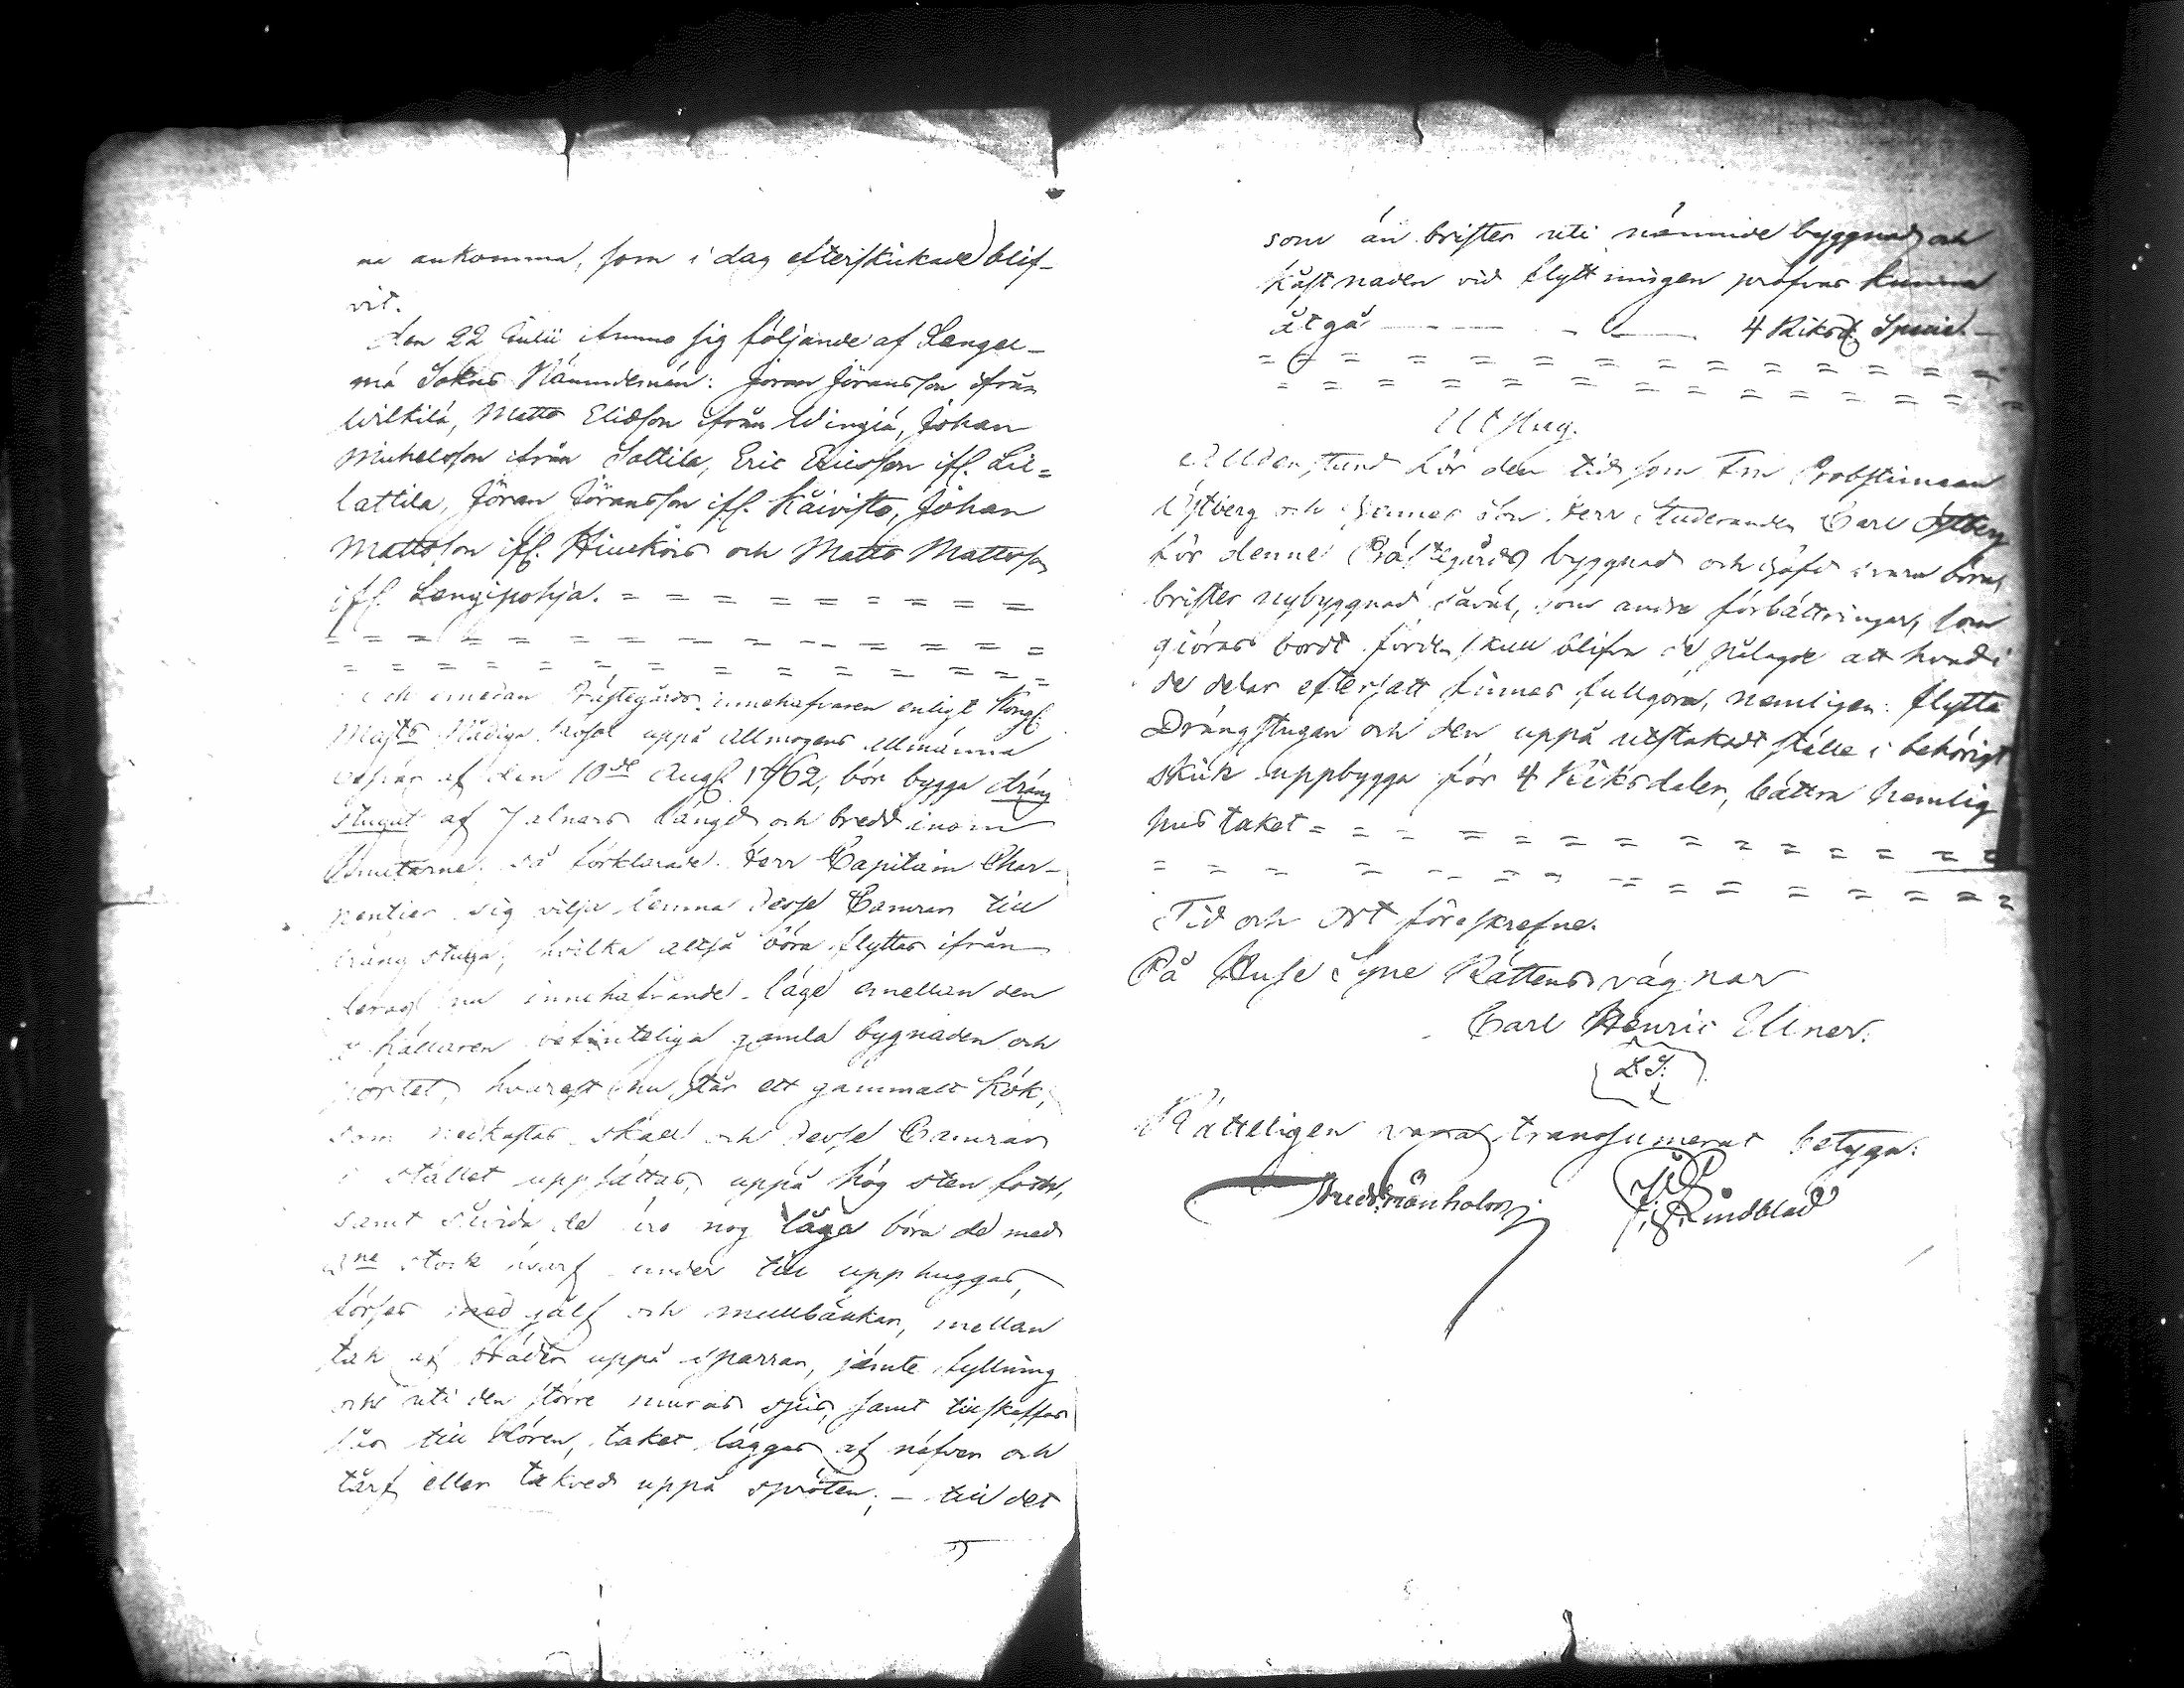 na ankomma, som i dag efterskickade blif-
vit.
den 22 Julii itunno sig följande af Lengel-
mä Sokns Nämndemän: Jöran Jöransson ifrån
Wilkilä, Matts Elidsson ifrån Wingiä, Johan
Michelsson ifrån Sattila, Eric Ericsson ifl. Lil-
lattila, Jöran Jöransson ifl. Kåivisto, Johan
Mattsson ifl. Hiuckois och Matts Mattsson
ifl. Lengipohja. = = = = = = = = = =
= = = = = = = = = = = = =
= = = = = = = = = = = =
och emedan Prästegårds innehafvaren enligt Kongl.
Majts Nådiga uppå Allmogens Allmänna
af den 10de Augl 1762, bör bygga dräng
stugut af 7 alnars längd och bredd inom
knutarne, så förklarade Herr Capitain Char-
pentier sig vilja lemna desse Camrar till
dräng stuga, hvilka altså böra flyttas ifrån
deras nu innehafvande läge emellan den
källaren befinteliga gamla bygnaden och
pörtet, hvarest nu står ett gammalt kök,
som nedkastas skall och desse Camrar
i stället uppsättas, uppå hög sten fot,
samt såvida de äro nog låga böra de med
2ne stock hvarf under till upphuggas,
förses med gålf och mullbänkar, mellan
tak af bräder uppå sparrar, jämte fyllning
och uti den större muras spis, samt tillskaffas
lås till dören, taket lägges af näfver och
tårf eller takved uppå spröten; – till det
som än brister uti nämnde byggnad och
kåstnaden vid flyttningen pröfvas kunna
åtgå — — — 4 Riksd. Specie. –
= = = = = = = = = = = = =
= = = = = = = = = = = = =
Utslag.
Alldenstund för den tid som Fru Probstinnan
Östberg och hennes Son Herr Studeranden Carl Östberg
för denne Prästegårds byggnad och häfd svara böra,
brister nybyggnad såväl, som andre förbättringar, som
giöras bordt fördens skull blifva de pålagde att hvad i
de delar eftersatt finnes fullgöra, nemligen: flytta
Drängstugan och den uppå utstakadt ställe i behörigt
skick uppbygga för 4 Riksdaler, bättra hemlig
hus taket = = = = = = = = = = = = =
= = = = = = = = = = = = = =
Tid och Ort föreskrefne.
På Huse Syne Rättens vägnar
Carl Henric Ullner.
L.S.
Rätteligen vara transsumerat betyga:
Fred: Grönholm J: G: Lindblad